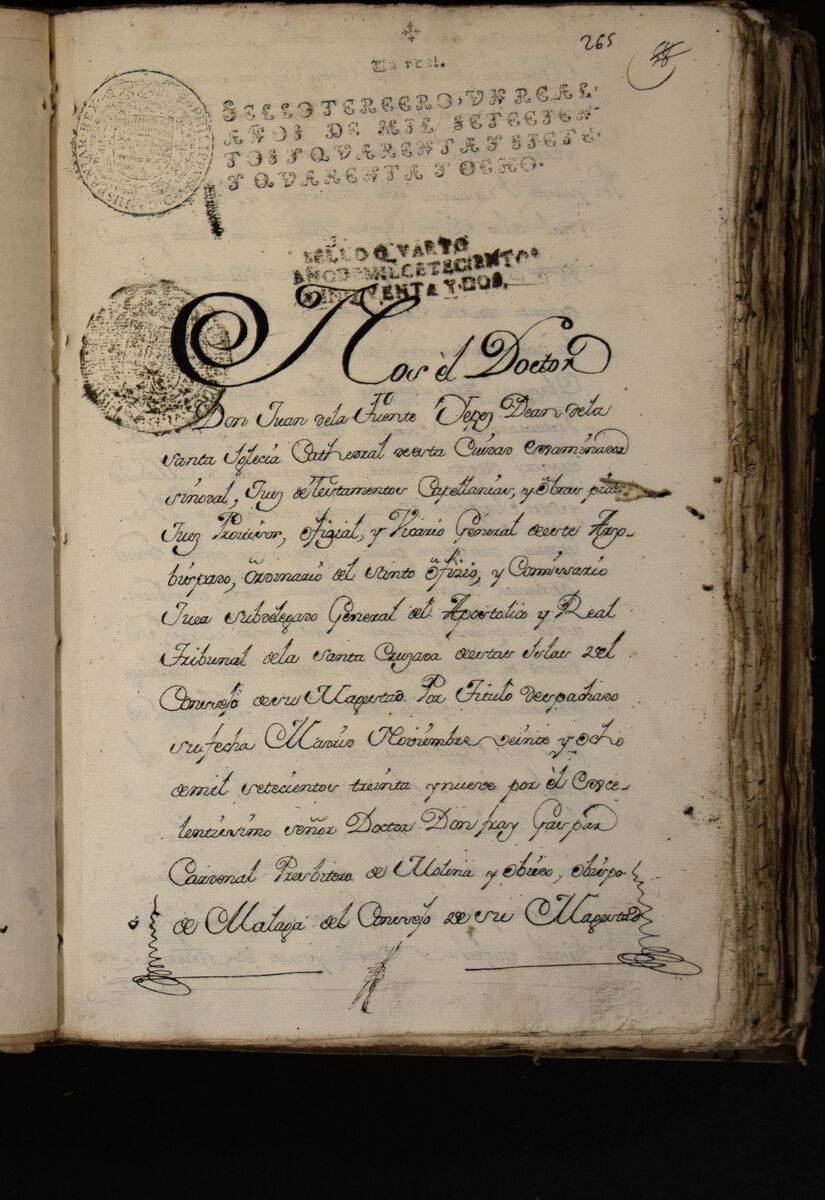 265
Un real.
SELLO TERCERO, UN REAL
AÑOS DE MIL SETECIEN
TOS Y QVARENTA Y SIETE
Y QVARENTA Y OCHO.
SELLO QVARTO
AÑO DE MIL CETECIENTOS
CINQVENTA Y DOS,
Nos èl Doctor
Don Juan dela Fuente Yepez Dean dela
Santa Iglecia Cathedral de esta Ciudad Examinador
sinodal, Juez de Testamentos Capellanias, y õbras pias
Juez Provisor, õfizial, y Vicario General de este Arzo-
bispado, õrdinario del Santo õfizio, y Comissario
Juez Subdelegado General del Apostolico y Real
Tribunal dela Santa Cruzada de estas Islas del
Consejo de su Magestad. Por Titulo despachado
su fecha Madrid Noviembre veinte y ocho
de mil setecientos treinta y nueve por èl Exce-
lentissimo señor Doctor Don fray Gaspar
Cardenal Presbitero de Molina y obiedo, obispo
de Malaga del Consejo de su Magestad